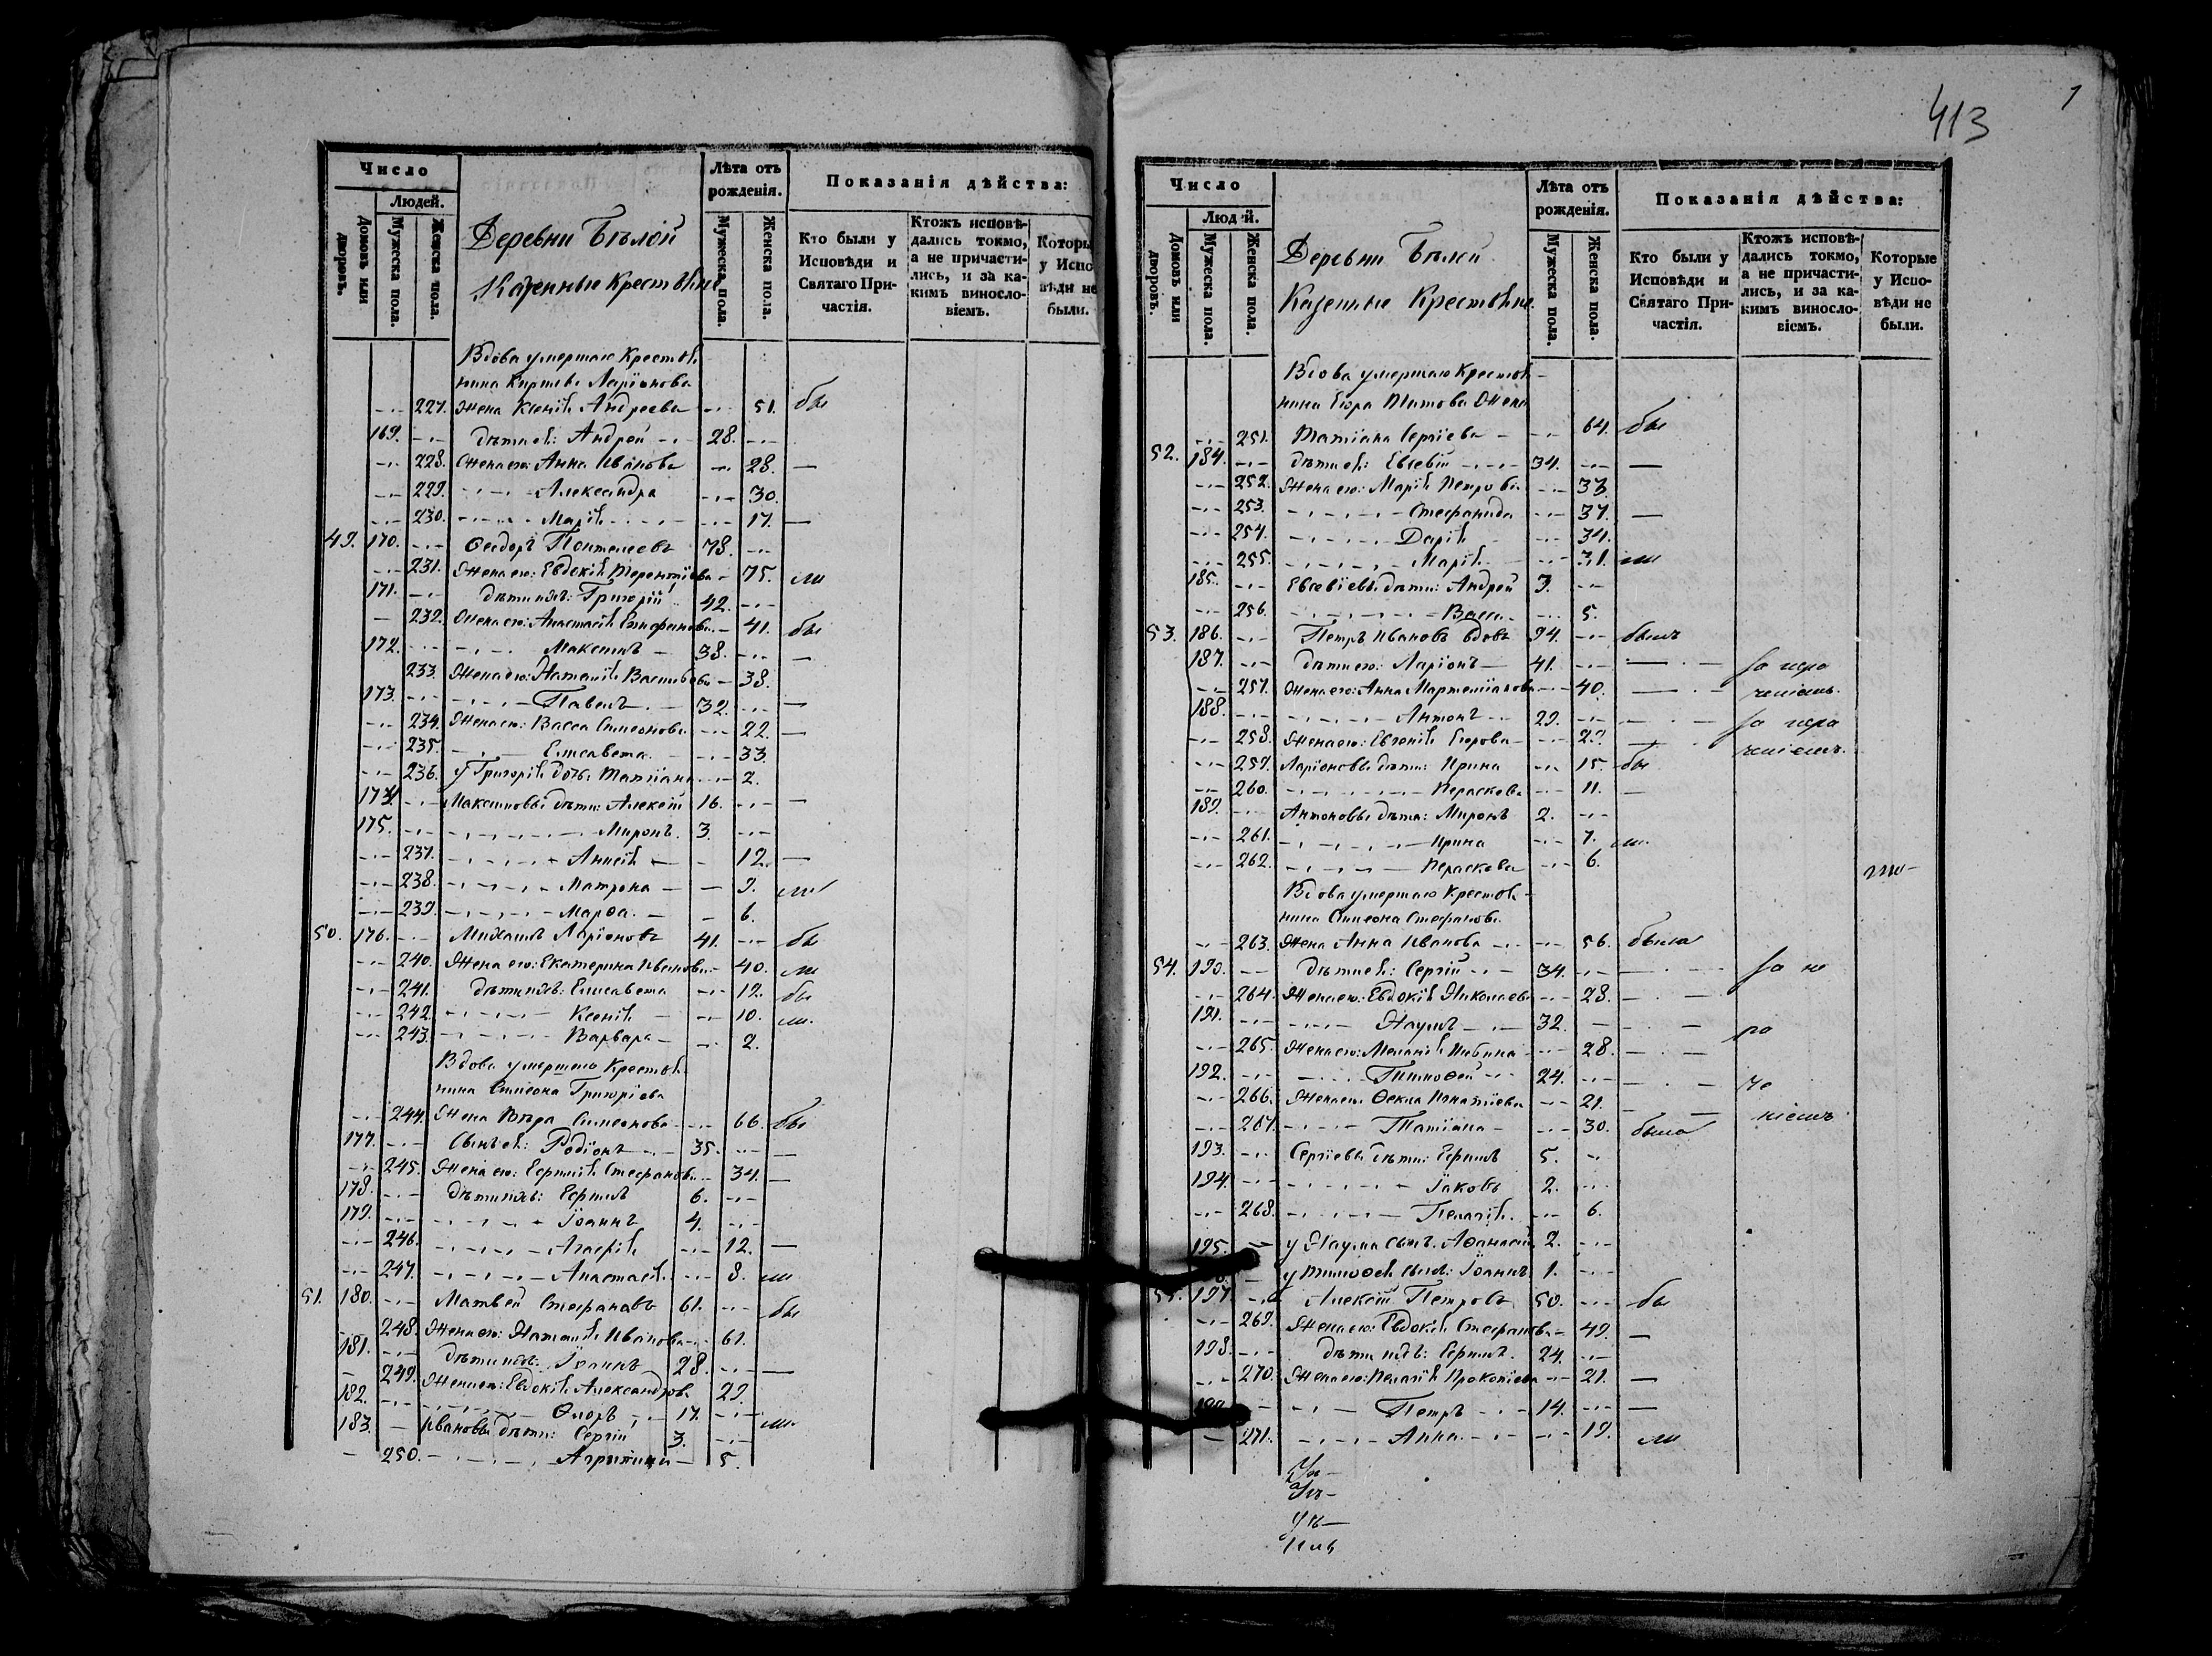 Число
Людей.
Домовъ или дворовъ.
Мужеска пола.
Женска пола.
Деревни Бѣлой
Казенные Крестьяне
Лѣта отъ рожденія.
Мужеска пола.
Женска пола.
Показанія дѣйства:
Кто были у Исповѣди и Святаго Причастія.
Ктожъ исповѣдались токмо, а не причастились, и за какимъ винословіемъ.
Которы у Испо вѣди не были.
Вдова умершаго Крестья
нина Ларіонова
227. Жена Ксенія Андреева 51. бы
169. дѣти ея: Андрей 28.
228. Жена его: Анна Иванова 28. —
229. Александра 30.
230. Марія 17. —
49. 170. Ѳеодоръ Пантелеевъ 78.
231. Жена его: Евдокія Терентіева 75. ли
171. дѣти ихъ: Григорій 42.
232. Жена его: Анастасія Епифанова 41. бы
172. Максимъ 38. —
233. Жена его: Наталія Васильева 38.
173. Павелъ 32. —
234. Жена его: Васса Симеонова 22. —
235. Елисавета 33.
236. у Григорія дочь Татіана 2.
174. Максимовы дѣти: Алексій 16. —
175. Миронъ 3.
237. Анисія 12. —
238. Матрона 9. ли
239. Марѳа 6.
50. 176. Михаилъ Ларіоновъ 41. бы
240. Жена его: Екатерина Иванова 40. ли
241. дѣти ихъ: Елисавета 12. бы
242. Ксенія 10. ли
243. Варвара 2.
Вдова умершаго Крестья
нина Симеона Григоріева
244. Жена Вѣра Симеонова 66. бы
177. Сынъ ея: Родіонъ 35. —
245. Жена его: Евфимія Стефанова 34. —
178. дѣти ихъ: Ефимъ 6.
179. Іоаннъ 4.
246. Агафія 12. —
247. Анастасія 8. ли
51. 180. Матвей Стефановъ 61. бы
248. Жена его: Наталія Иванова 61.
181. дѣти ихъ: Іоаннъ 28. —
249. Жена его: Евдокія Александрова 29.
182. 17. ли
183. Ивановы дѣти: Сергій 3.
250. Агрипина 5.
413
1
Число
Людей.
Домовъ или дворовъ.
Мужеска пола.
Женска пола.
Деревни Бѣлой
Казенные Крестьяне
Лѣта отъ рожденія.
Мужеска пола.
Женска пола.
Показанія дѣйства:
Кто были у Исповѣди и Святаго Причастія.
Ктожъ исповѣдались токмо, а не причастились, и за какимъ винословіемъ.
Которые у Исповѣди не были.
Вдова умершаго Крестья
нина Егора Титова Жена
251. Татіана Сергіева 64. бы
52. 184. дѣти ея: Евсевій 34. —
252. Жена его: Марія Петрова 33.
253. Стефанида 37. —
254. Дарія 34.
255. Марія 31. ли
185. Евсевіевы дѣти: Андрей 3.
256. Васса 5.
53. 186. Петръ Ивановъ вдовъ 94. былъ
187. дѣти его: Ларіонъ 41. — за нера
257. Жена его: Анна Мартиніанова 40. — ченіемъ.
188. Антонъ 29. — за нера
258. Жена его: Евгенія Егорова 29. — ченіемъ.
259. Ларіоновы дѣти: Ирина 15. бы
260. Параскева 11. —
189. Антоновы дѣти: Миронъ 2.
261. Ирина 7. ли
262. Параскева 6.
Вдова умершаго Крестья
нина Симеона Стефанова
263. Жена Анна Иванова 56. была
54. 190. дѣти ея: Сергій 34. — за не
264. Жена его: Евдокія Николаева 28. —
191. Наумъ 32. — ра
265. Жена его: Меланія 28. —
192. Тимоѳей 24. — че
266. Жена его Ѳекла Игнатіева 21. — ніемъ
267. Татіана 30. была
193. Сергіевы дѣти: Ефимъ 5.
194. Іаковъ 2.
268. Пелагія 6.
195. у Наума сынъ Аѳанасій 2.
у Тимоѳея сынъ: Іоаннъ 1.
197. Алексій Петровъ 50. бы
269. Жена его: Евдокія Стефанова 49. —
198. дѣти ихъ: Ефимъ 24.
270. Жена его: Пелагія Прокопіева 21. —
Петръ 14. —
271. Анна 19. ли